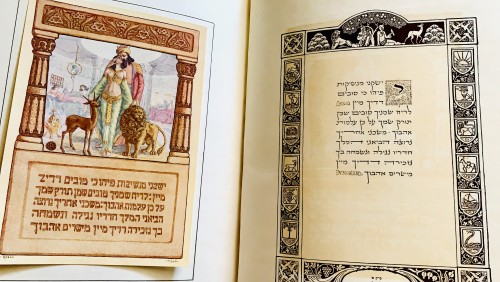 ישקני מנשיקות
פיהו כי טובים
דדיך מיין
לריח שמניך טובים שמן
תורק שמך על כן עלמות
אהבוך משכני אחריך
נרוצה הביאני המלך
חדריו נגילה ונשמחה בך
נזכירה דדיך מיין
מישרים אהבוך
ישקני מנשיקות פיהו כי טובים דדיך
מיין: לריח שמניך טובים שמן תורק שמך
על כן עלמות אהבוך: משכני אחריך נרוצה
הביאני המלך חדריו נגילה ונשמחה
בך נזכירה דדיך מיין מישרים אהבוך